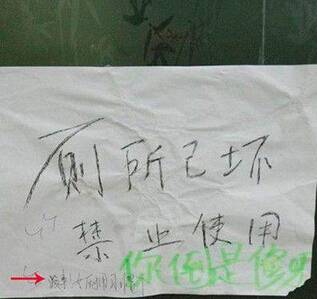 厕所已坏
禁止使用
你倒是修呀